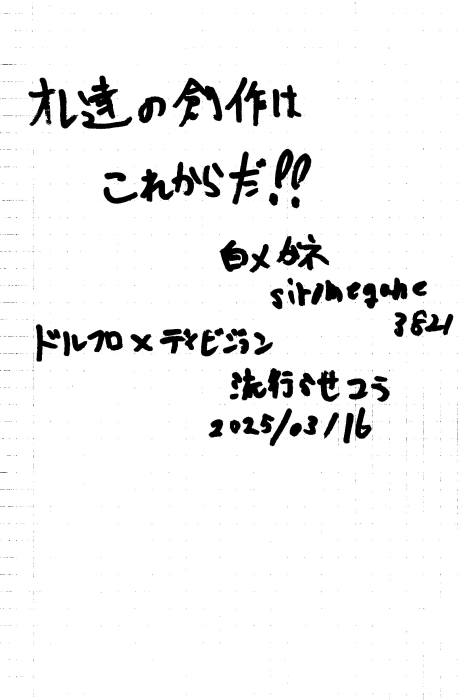 オレ達の創作は
これからだ!!
白メガネ
siromegane
3821
ドルフロ×ディビジョン
流行らせコラ
2025/03/16